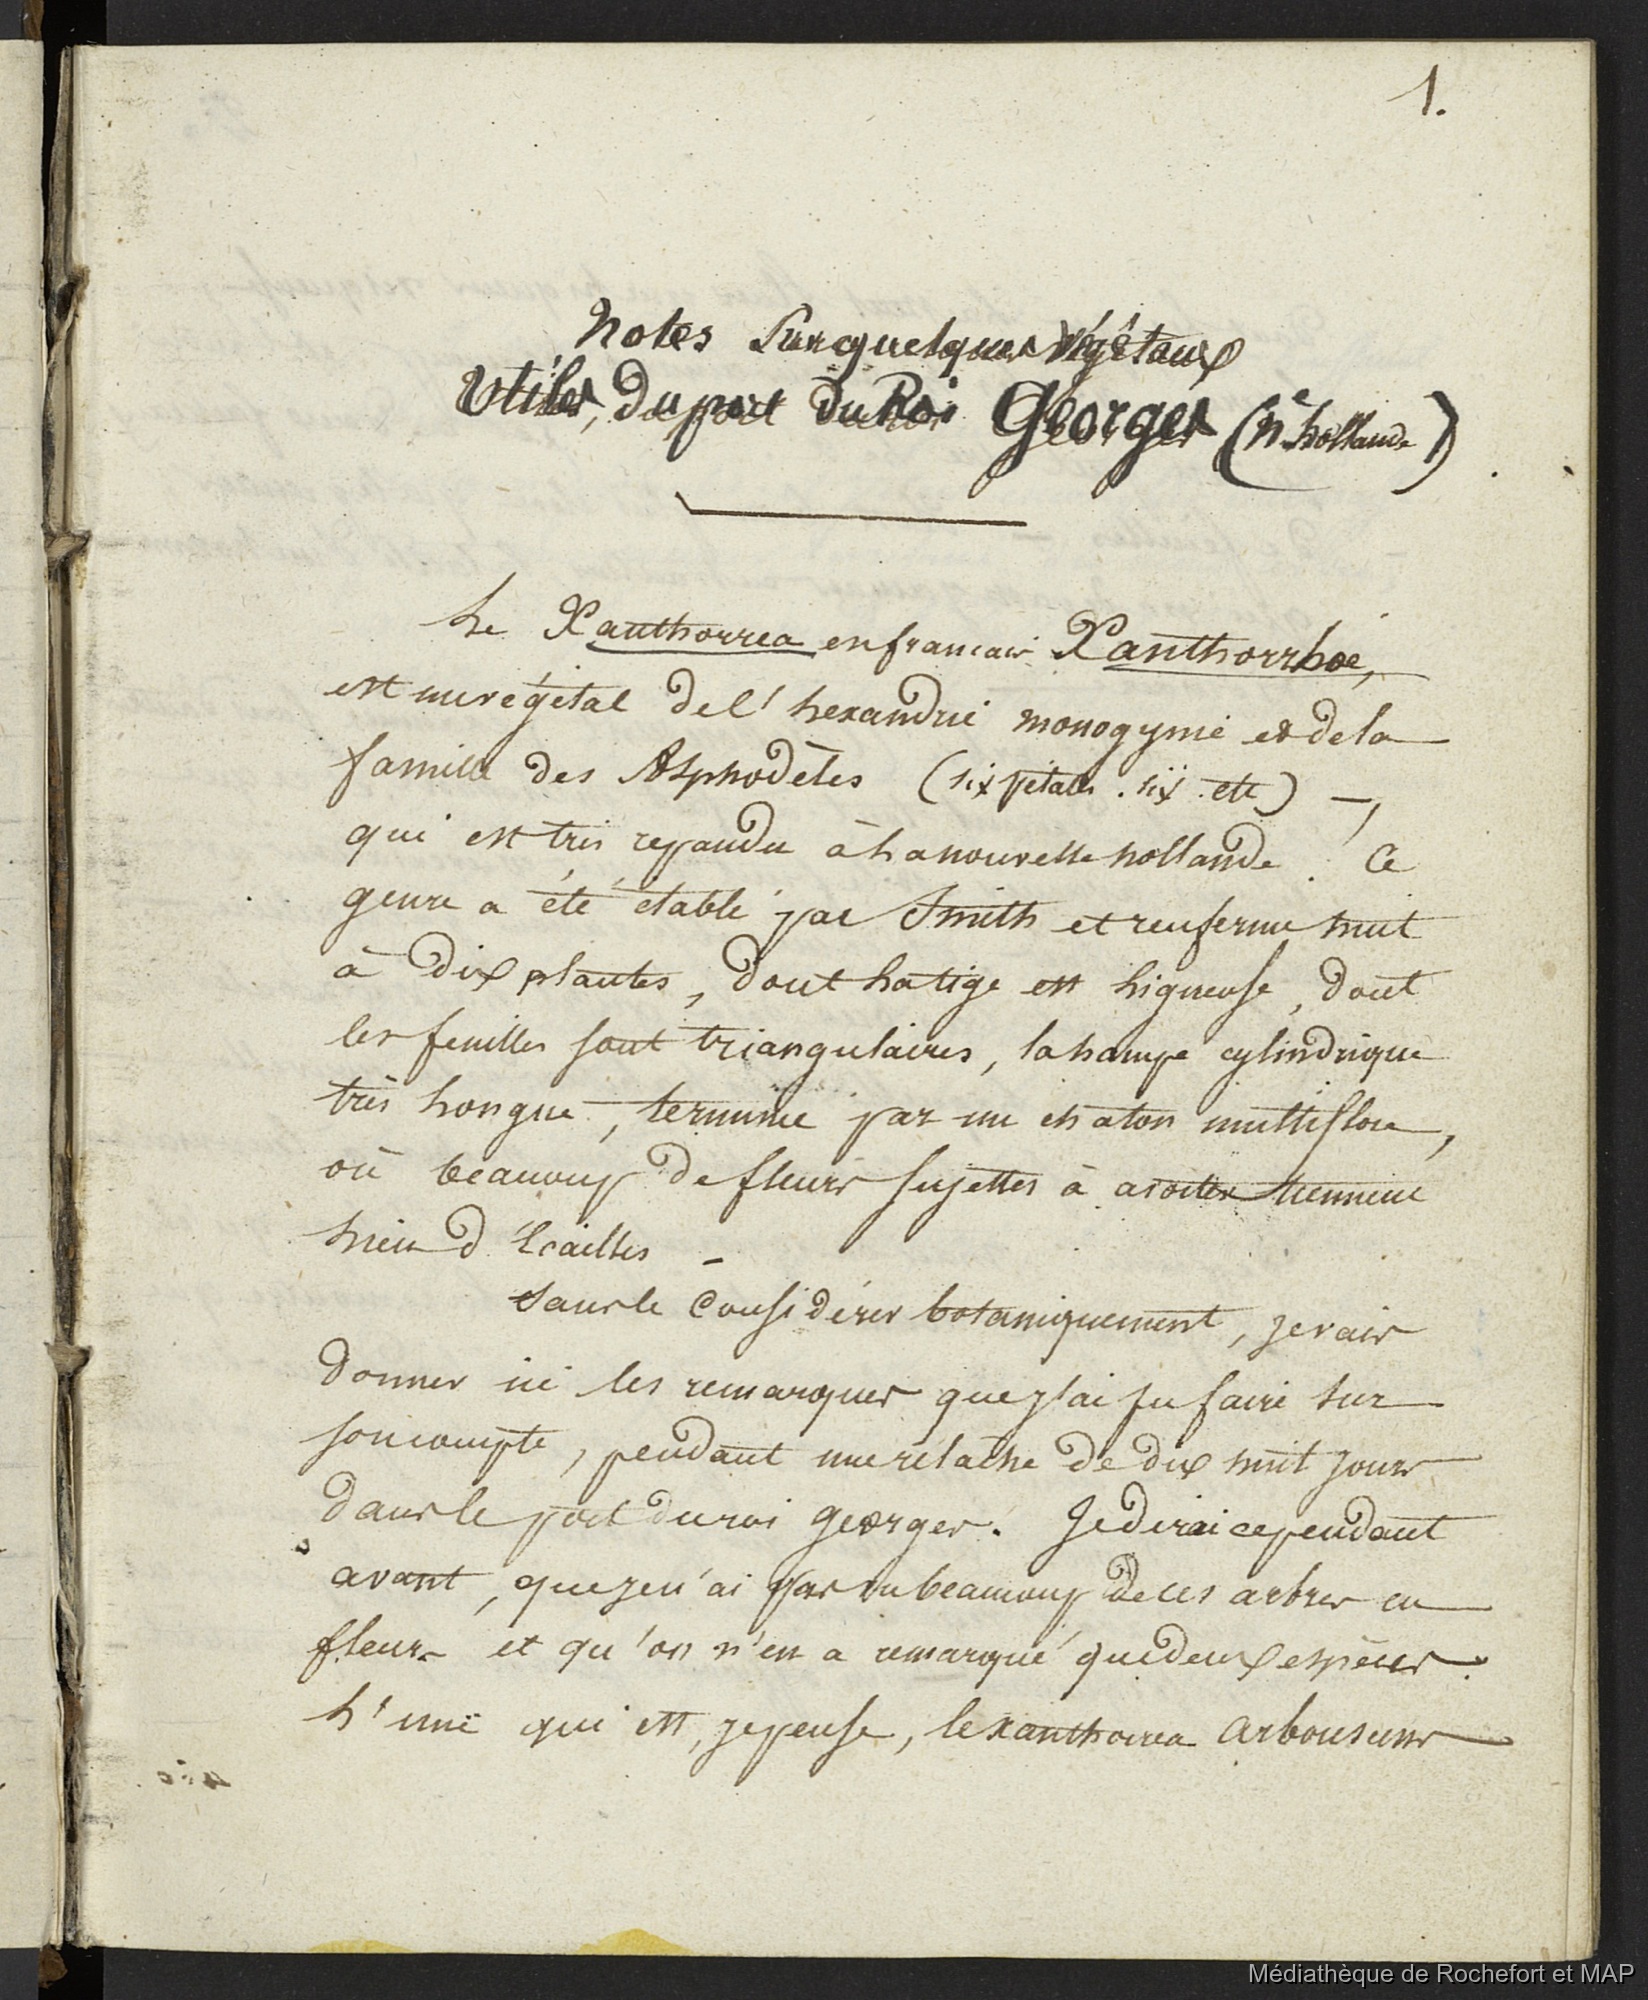 1.
Notes sur quelques végétaux
Utiles, du port du Roi Georges (Nle hollande)
Le Xanthorrea en francais Xanthorrhoé,
est un végétal de l'hexandrie monogynie et de la
famille des Asphodèles (six pétales . six . ett) —,
qui est très repandu à la nouvelle hollande . Ce
genre a été établé par Smith et renferme huit
à dix plantes, dont la tige est ligneuse, dont
les feuilles sont triangulaires, la hampe cylindrique
très longue, terminée par un chaton multiflore,
où beaucoup de fleurs sujettes à avorter tiennent
lieu d'écailles —
Sans le considérer botaniquement, je vais
donner ici les remarques que j'ai pu faire sur
son compte, pendant une relâche de dix huit jours
dans le port du roi georges. Je dirai cependant
avant, que je n'ai pas vu beaucoup de ces arbres en
fleurs et qu'on n'en a remarqué que deux espèces.
l'une qui est, je pense, le xanthorrea arbouseus
Médiathèque de Rochefort et MAP